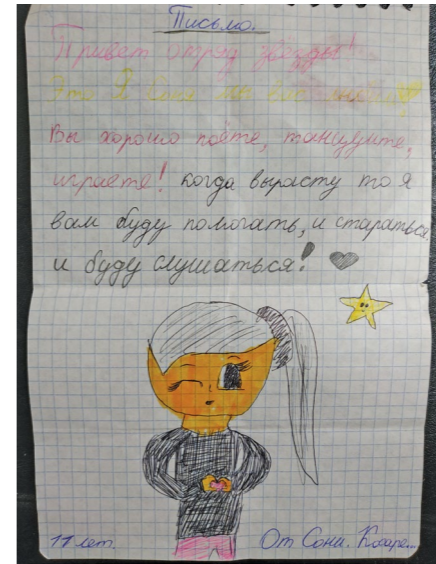 Письмо.
Привет отряд звёзды!
Это Я Соня мы вас
Вы хорошо поёте, танцуите,
играете! когда вырасту то я
вам буду помогать, и стараться
и буду слушаться!
11 лет. От Сони.